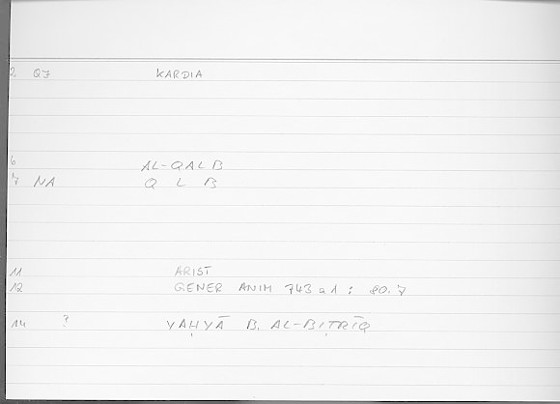 2 Q7 KARDIA
6 AL-QALB
7 NA Q L B
11 ARIST
12 GENER ANIM 743 a 1 : 80.7
14 ? YAḤYĀ B. AL-BIṬRĪQ